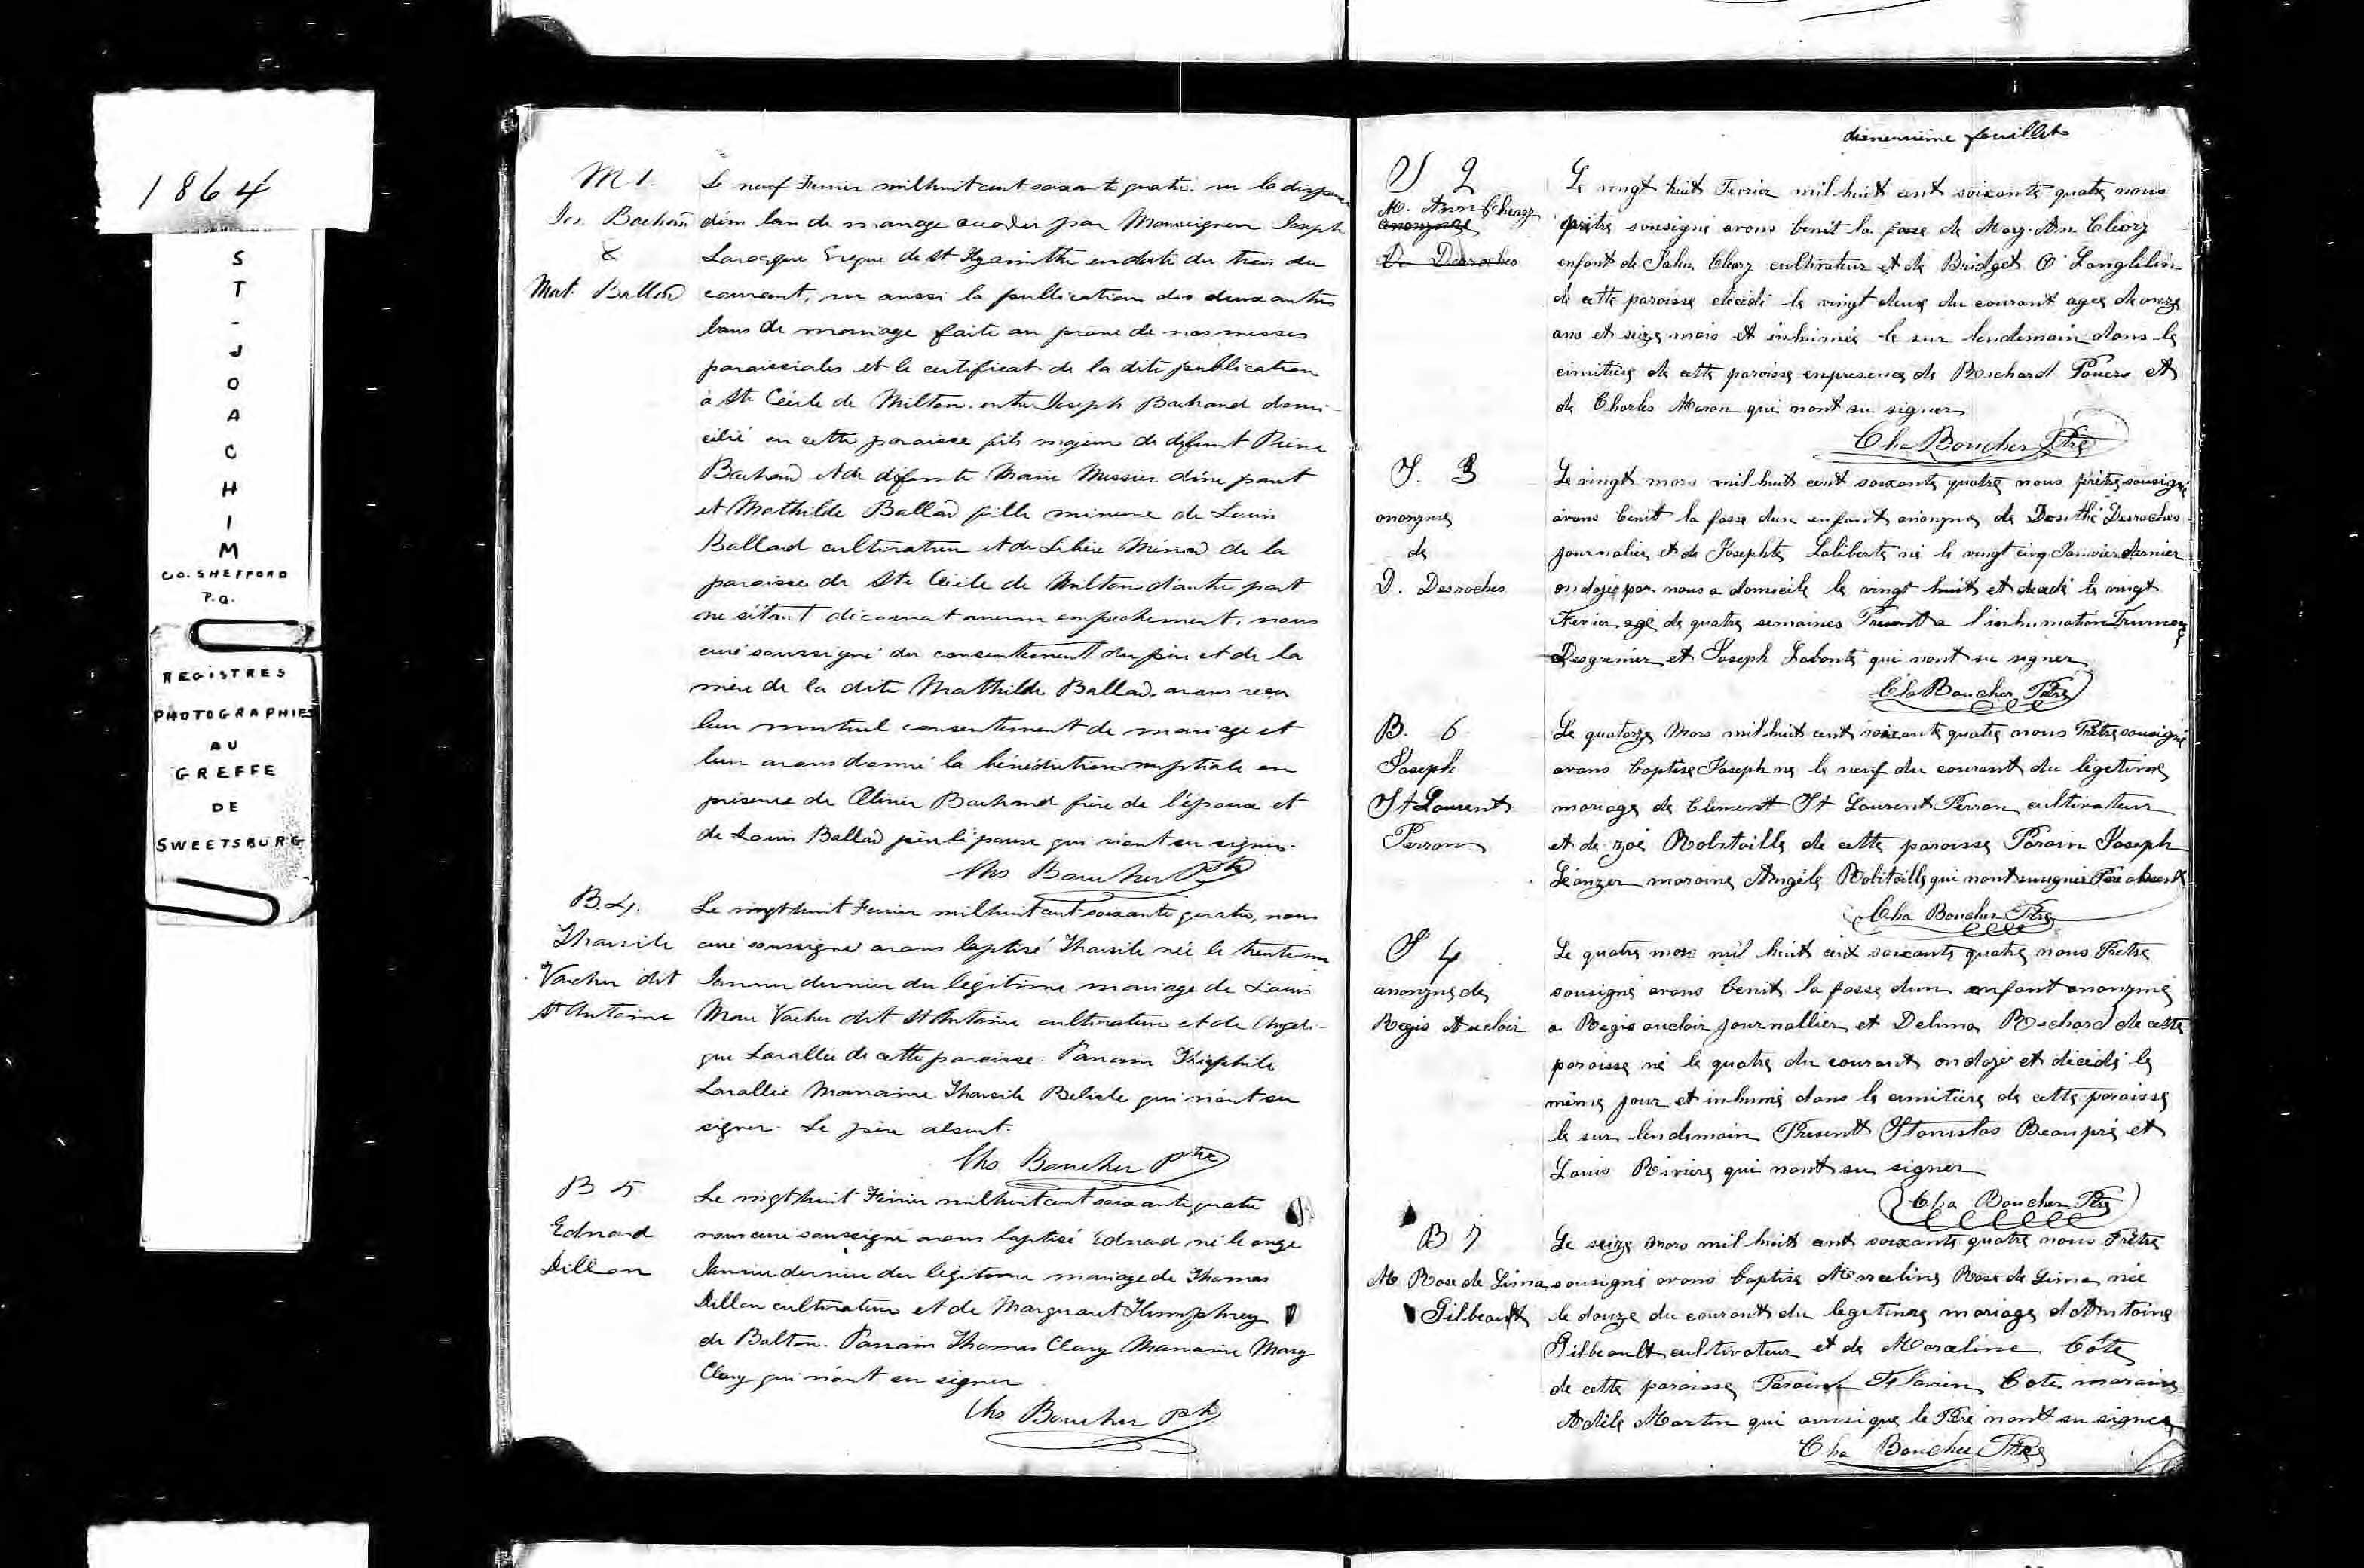 1864
S
T
-
J
O
A
C
H
I
M
CO. SHEFFORD
P.Q.
REGISTRES
PHOTOGRAPHIES
AU
GREFFE
DE
SWEETSBURG
M 1.
Jos. Bachand
&
Mat. Ballard
Le neuf Fevrier mil huit cent soixante quatre. vu la dispense
d'un ban de mariage accordée par Monseigneur Joseph
Larocque Evêque de St Hyacinthe en date du trois du
courant, vu aussi la publication des deux autres
bans de mariage faite au prône de nos messes
paroissiales et le certificat de la dite publication
à Ste Cécile de Milton. entre Joseph Bachand domi-
cilié en cette paroisse fils majeur de défunt Prime
Bachand et de défunte Marie Messier d'une part
et Mathilde Ballard fille mineure de Louis
Ballard cultivateur et de de la
paroisse de Ste Cécile de Milton d'autre part
ne s'étant découvert aucun empêchement. nous
curé soussigné du consentement du père et de la
mère de la dite Mathilde Ballard. avons reçu
leur mutuel consentement de mariage et
leur avons donné la bénédiction nuptiale en
présence de Olivier Bachand frère de l'époux et
de Louis Ballard père l'épouse qui n'ont su signer.
Chs Boucher Ptre
B. 4.
Tharsile
Vacher dit
St Antoine
Le vingt huit Fevrier mil huit cent soixante quatre, nous
curé soussigné avons baptisé Tharsile née le trente un
Janvier dernier du légitime mariage de Louis
Marc Vacher dit St Antoine cultivateur et de Angeli-
que Lavallée de cette paroisse. Parrain Théophile
Lavallée Marraine Tharsile Belisle qui n'ont su
signer. Le père absent.
Chs Boucher Ptre
B 5
Edouard
Dillon
Le vingt huit Février mil huit cent soixante quatre
nous curé soussigné avons baptisé Edouard né le onze
Janvier dernier du légitime mariage de Thomas
Dillon cultivateur et de Marguaret Humphrey
de Bolton. Parrain Thomas Clary Marraine Mary
Clary qui n'ont su signer
Chs Boucher Ptre
dixneuvième feuillet
S 2
M. Ann Cleary
anonyme
D. Desroches
Le vingt huit Fevrier mil huit cent soixante quatre nous
prêtre sousigné avons benit la fosse de Mary. Ann Cleary
enfant de John Cleary cultivateur et de Bridget O'Langhlin
de cette paroisse décédé le vingt deux du courant agee de onze
ans et seize mois et inhumée le sur lendemain dans le
cimitière de cette paroisse en presence de Power et
de Charles qui nont su signer
Cha Boucher Ptre
S. 3
anonyme
de
D. Desroches
Le vingt mars mil huit cent soixante quatre nous prêtre sousigné
avons benit la fosse dun enfant anonyme de Dosithé Desroches
Journalier et de Josephte Laliberte né le vingt cinq Janvier dernier
ondoyé par nous a domicile le vingt huit et decedé le vingt
Fevrier agé de quatre semaines Present a l'inhumation
Desgranier et Joseph Labonte qui nont su signer
Cha Boucher Ptre
B. 6
Joseph
St Laurent
Perron
Le quatorze Mars mil huit cent soixante quatre nous Prêtre sousigné
avons baptise Joseph ne le neuf du courant du légetime
mariage de Clement St Laurent Perron cultivateur
et de zoé Robitaille de cette paroisse Parain Joseph
maraine Angèle Robitaille qui nont su signer Pere absent
Cha Boucher Ptre
S 4
anonyme de
Regis Auclair
Le quatre mars mil huit cent soixante quatre nous Prêtre
sousigné avons benit la fosse dun enfant anonyme
a Regis auclair journallier et Delima Richard de cette
paroisse né le quatre du courant ondoyé et décédé le
même jour et inhumé dans le cimitière de cette paroisse
le sur lendemain Present Stanislas Beaupré et
Louis Riviere qui nont su signer
Cha Boucher Ptre
B 7
M Rose de Lima
Gilbeault
Le seize Mars mil huit cent soixante quatre nous Prêtre
sousigné avons baptise Marceline Rose de Lima née
le douze du courant du legetime mariage d'Antoine
Gilbeault cultivateur et de Marceline Côte
de cette paroisse Parain Flavien Cote maraine
Adèle Martin qui ainsi que le Père nont su signer
Cha Boucher Ptre